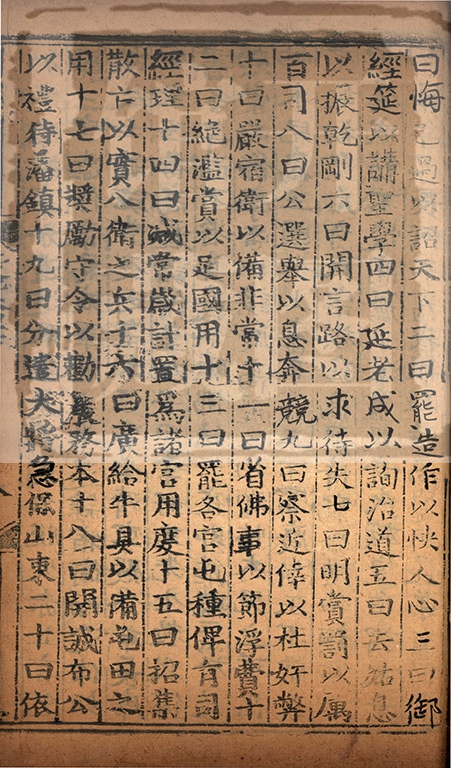 曰悔之過以詔天下二曰罷造作以快人心三曰御
經筵以講聖學四曰延老成以詢治道五曰去姑息
以振乾剛六曰開言路以求待失七曰明賞罰以厲
百司八曰公選舉以息奔競九曰察近倖以杜奸弊
十曰嚴宿衛以備非常十一曰省佛事以節浮費十
二曰絶濫賞以足國用十三曰罷各官屯種俾有司
經理十四曰减常歲計置爲諸宮用度十五曰招集
散亡以實八衛之兵十六曰廣給牛具以備屯田之
用十七曰奬勵守令以勸農務本十八曰開誠布公
以禮待藩鎮十九曰分遣大將急保山東二十曰依